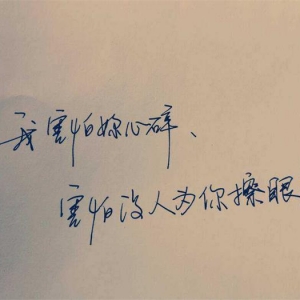 我害怕妳心碎、
害怕没人为你擦眼